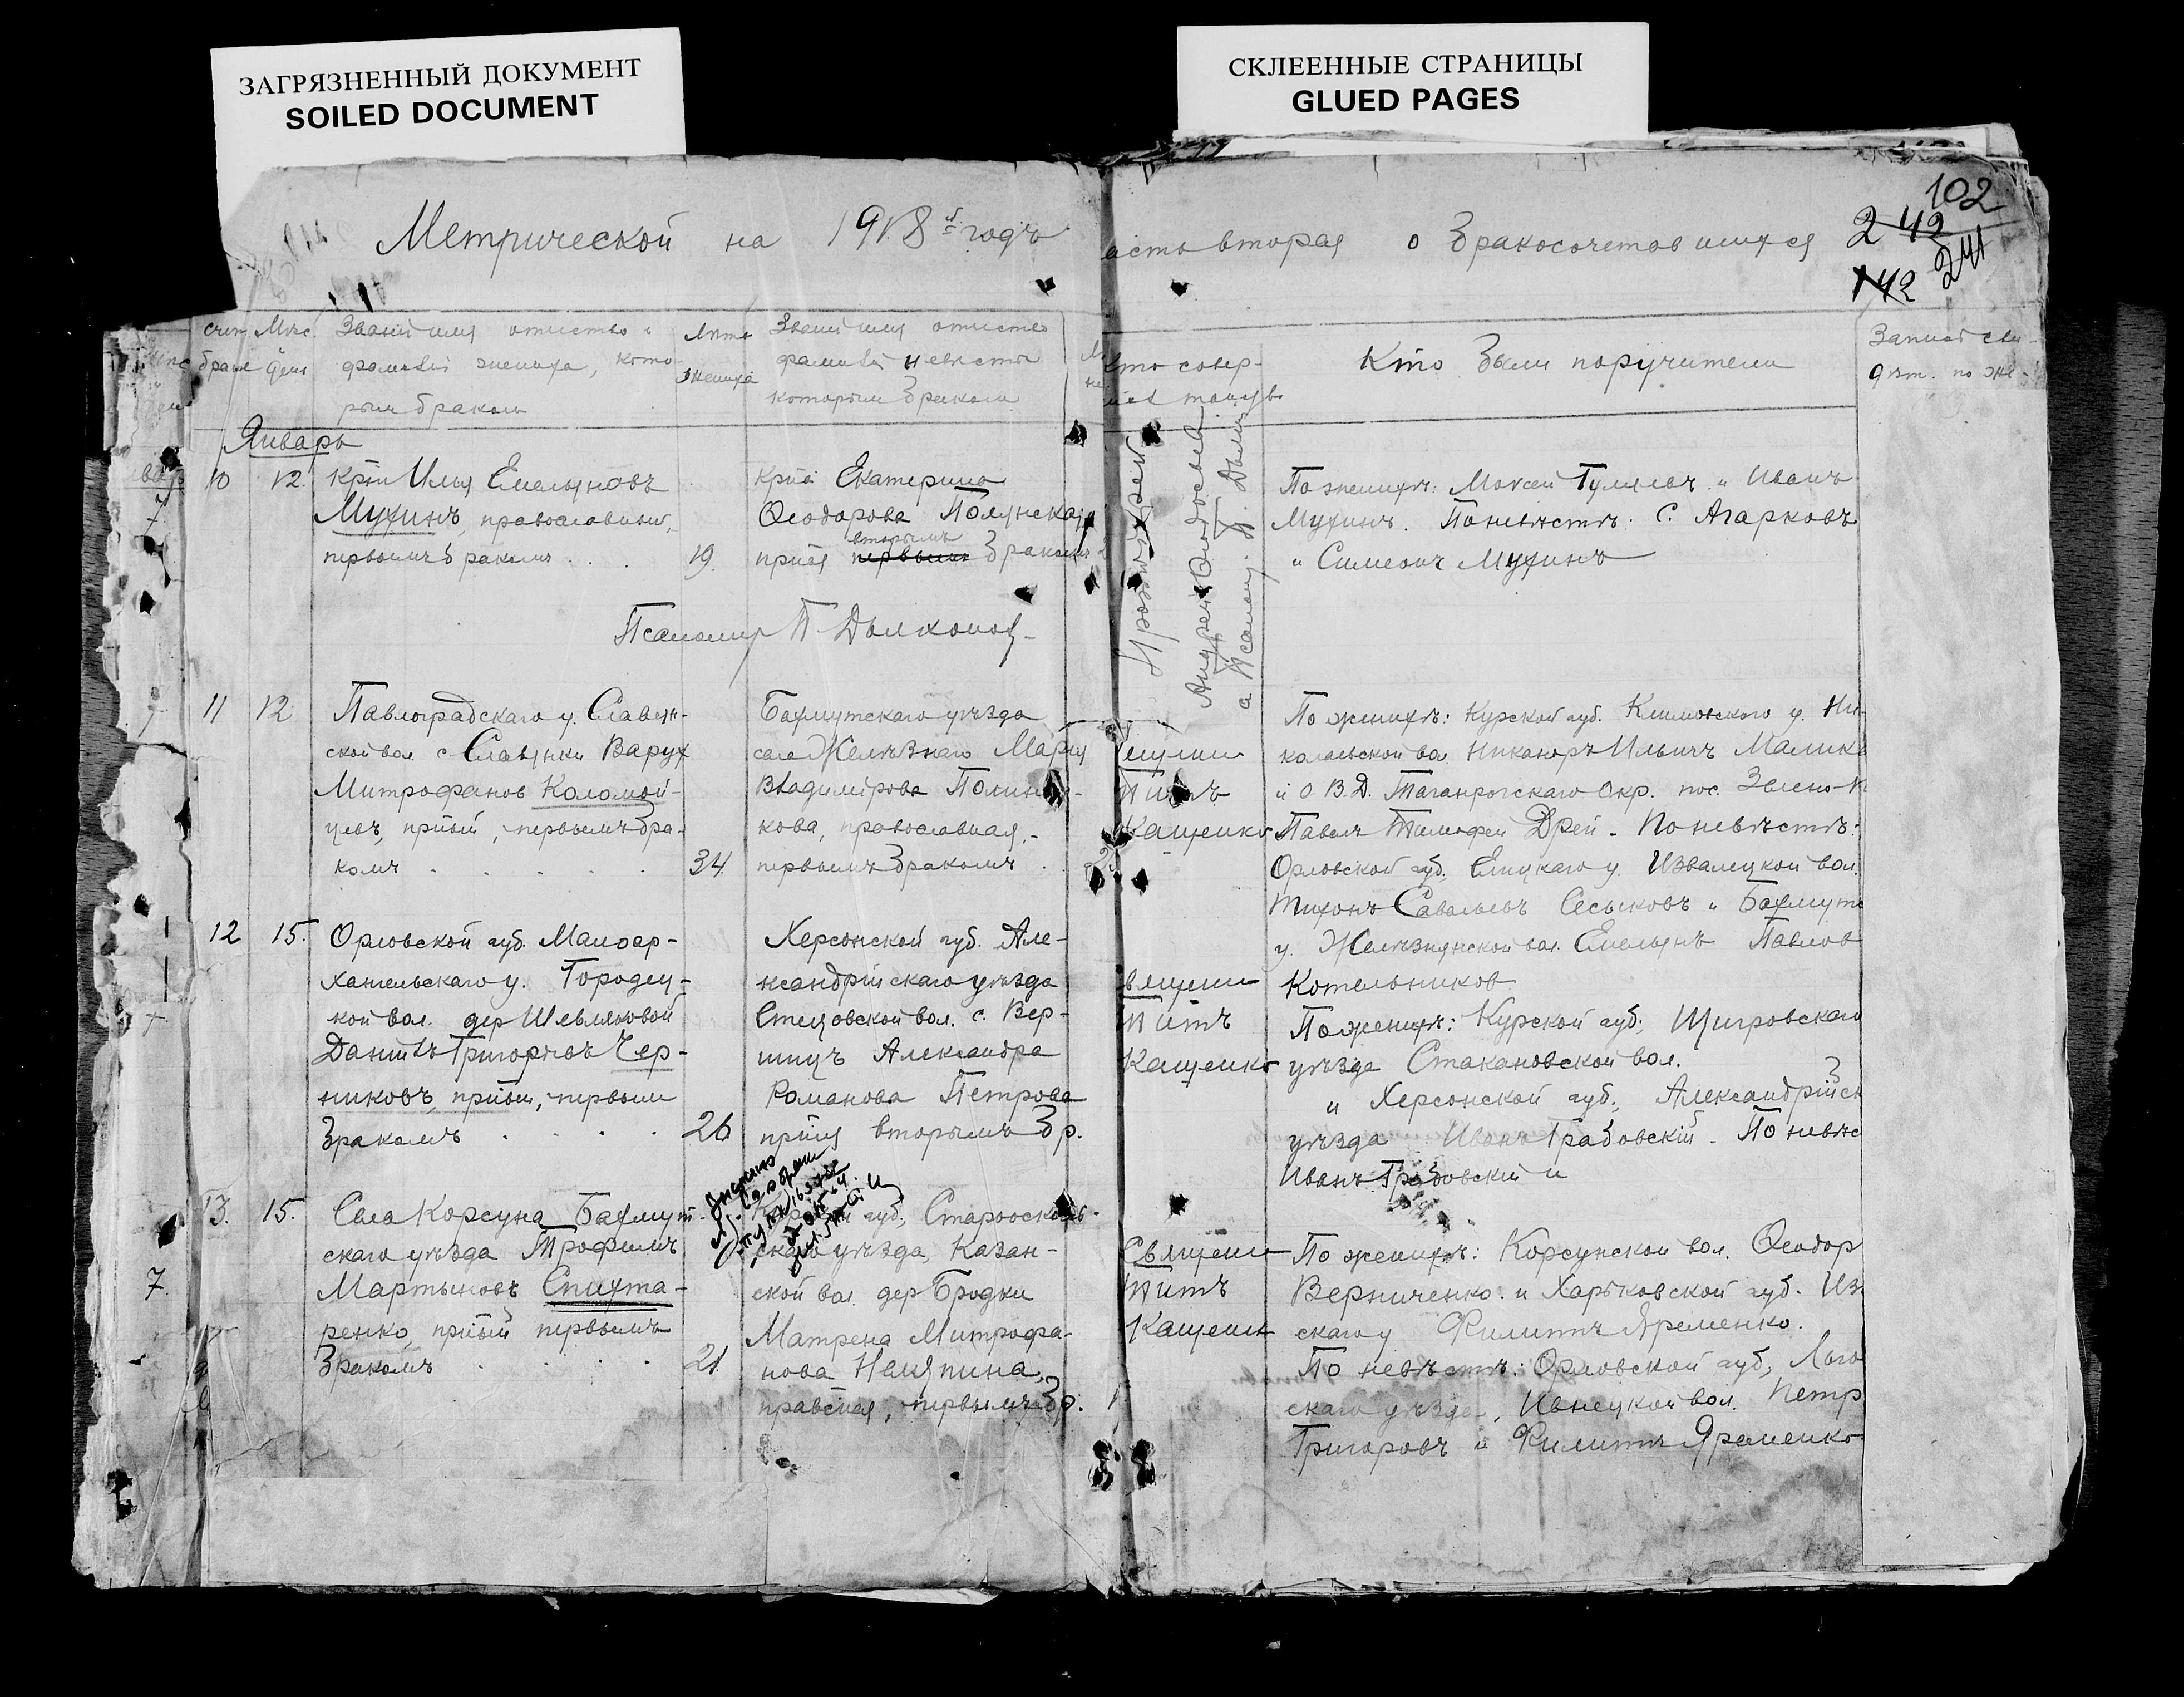 ЗАГРЯЗНЕННЫЙ ДОКУМЕНТ
SOILED DOCUMENT
СКЛЕЕННЫЕ СТРАНИЦЫ
GLUED PAGES
Метрической на 1918 годъ
асть вторая о бракосочетавшихся
102
242
241
142
счет Мѣс. Званіе имя отчество и
брак день фамилія жениха, кото-
рым браком
Лѣта
жениха
Званіе имя отчество
фамилія невѣсты
которым браком
кто совер-
Кто были поручители
Запись сви-
дѣт. по же-
Январь
10 12 Крн Илья Емельяновъ
Мухинъ, православный,
первымъ бракомъ . . . 19
Екатерина
Ѳеодорова Полянская
вторымъ
первымъ бракомъ
Протоіерей
Андрей
и Псалом. П. Дьяк
По женихѣ: Моисей Гуляевъ и Иванъ
Мухинъ. По невѣстѣ: С. Агарковъ
и Симеонъ Мухинъ
Псаломщ П. Дьяконов
11 12 Павлоградскаго у. Славян-
ской вол с Славянки Варух
Митрофанов Коломой-
цевъ, првый, первымъ бра-
комъ . . . . . 34
Бахмутскаго уѣзда
села Желѣзнаго Марія
Владимірова
кова, православная,
первымъ бракомъ
Титъ
Кащенко
По женихѣ: Курской губ. у. Ни-
колаевской вол. Никаноръ Ильичъ
и О. В. Д. Таганрогскаго Окр. пос.
Павелъ Тимофей Дрей - По невѣстѣ:
Орловской губ. Елецкаго у. Извалецкой вол.
Тихонъ Савельевъ и Бахмутс
у. Желѣзнянской вол. Емельянъ Павлов
Котельников
12 15. Орловской губ. Малоар-
хангельскаго у. Городец-
кой вол. дер Шевляковой
Даніилъ Григорьевъ Чер-
никовъ, првый, первым
бракомъ . . . . 26
Херсонской губ. Але-
ксандрійскаго уѣзда
Стецовской вол. с. Вер-
шицъ Александра
Романова Петрова
првая вторымъ бр.
вящени
Титъ
Кащенко
По женихѣ: Курской губ., Щигровскаго
уѣзда Стакановской вол.
и Херсонской губ., Александрійск
уѣзда Иванъ Грабовскій - По невѣс
Иванъ Грабовскій и
13. 15. Села Корсуна Бахмут-
скаго уѣзда Трофимъ
Мартыновъ Спихта-
ренко, првый первымъ
бракомъ . . . . 21
губ. Старооскол-
скаго уѣзда, Казан-
ской вол. дер Бродки
Матрена Митрофа-
нова
правсная, первымъ бр.
Священ
Титъ
Кащенк
По женихѣ: Корсунской вол. Ѳеодор
Верниченко. и Харьковской губ. Из
скаго у Филиппъ Яременко.
По невѣстѣ: Орловской губ,
скаго уѣзда, вол. Петр
Григоровъ и Филиппъ Яременко
7.